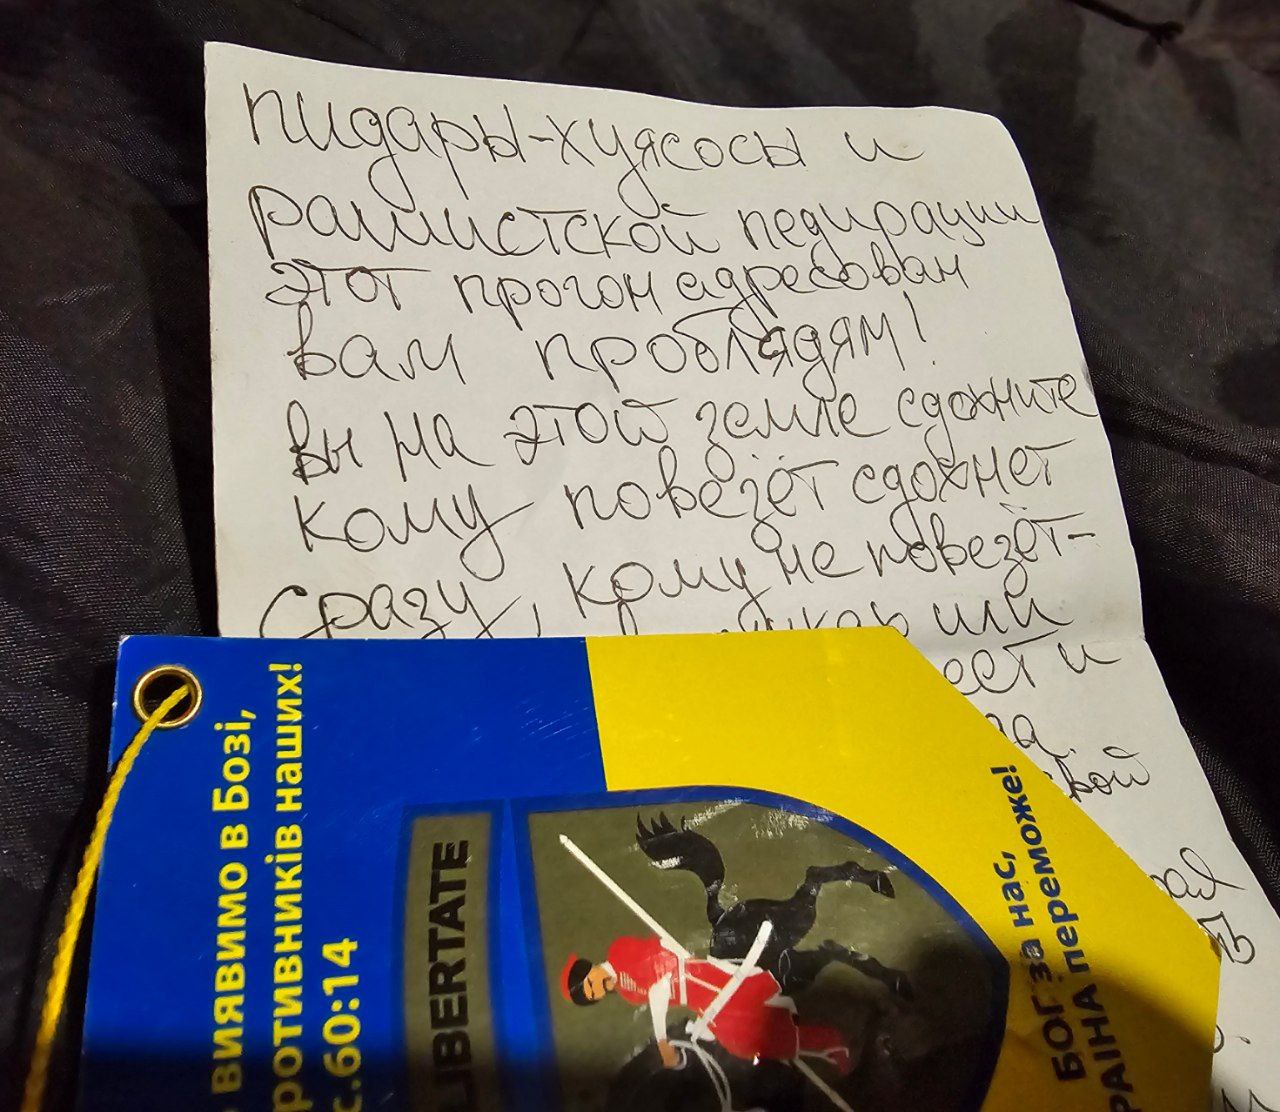 пидары-хуясосы и
рашистской педирации
этот прогон адресован
вам проблядям!
вы на этой земле сдохните
кому повезёт сдохнет
сразу, кому не повезёт-
или
ест и
вой
виявимо в Бозі,
ротивників наших!
с.60:14
LIBERTATE
БОГ за нас,
РАЇНА переможе!